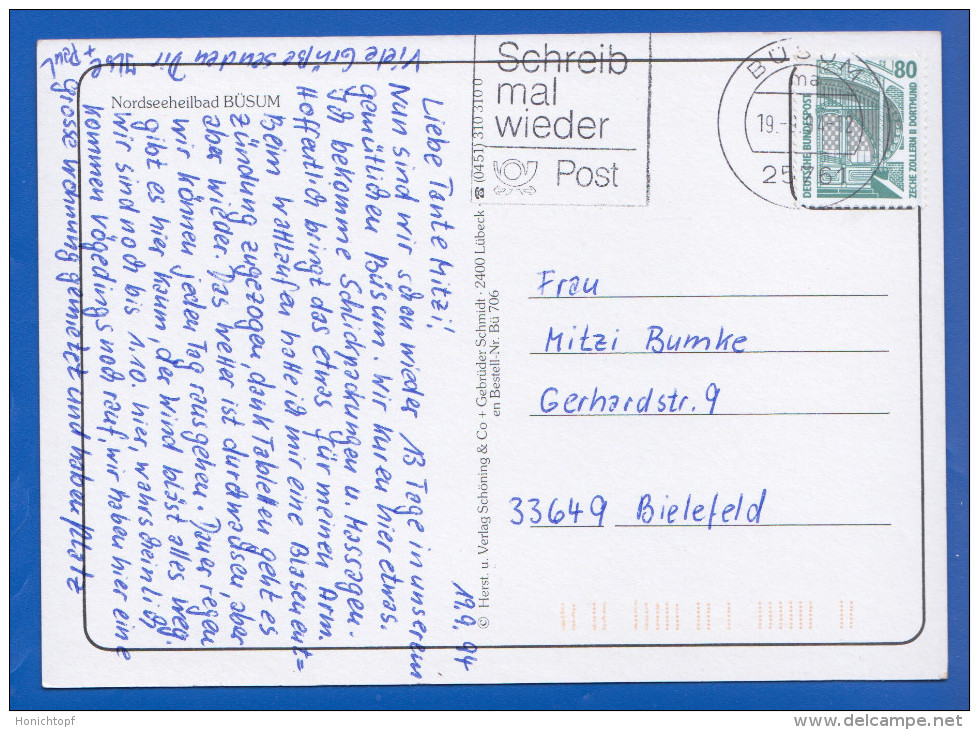 Nordseeheilbad BÜSUM
19.9.94
Liebe Tante Mitzi!
Nun sind wir schon wieder 13 Tage in unserem
gemütlichen Büsum. Wir kuren hier etwas.
Ich bekomme Schlickpackungen u. Massagen.
Hoffentlich bringt das etwas für meinen Arm.
Beim Wattlaufen hatte ich mir eine Blasenent=
zündung zugezogen, dank Tabletten geht es
aber wieder. Das Wetter ist durchwachsen, aber
wir können jeden Tag rausgehen. Dauerregen
gibt es hier kaum, der Wind bläst alles weg.
Wir sind noch bis 1.10. hier, wahrscheinlich
kommen noch rauf, wir haben hier eine
grosse Wohnung gemietet und haben Platz
Viele Grüße senden Dir Ilse
+ Paul
© Herst. u. Verlag Schöning & Co + Gebrüder Schmidt · 2400 Lübeck · ☎ (0451) 310 310 0
en Bestell-Nr. Bü 706
Schreib
mal
wieder
Post
BÜSUM
ma
19.-
25761
80
DEUTSCHE BUNDESPOST
ZECHE ZOLLERN II DORTMUND
Frau
Mitzi Bumke
Gerhardstr. 9
33649 Bielefeld
Honichtopf
delcampe.net